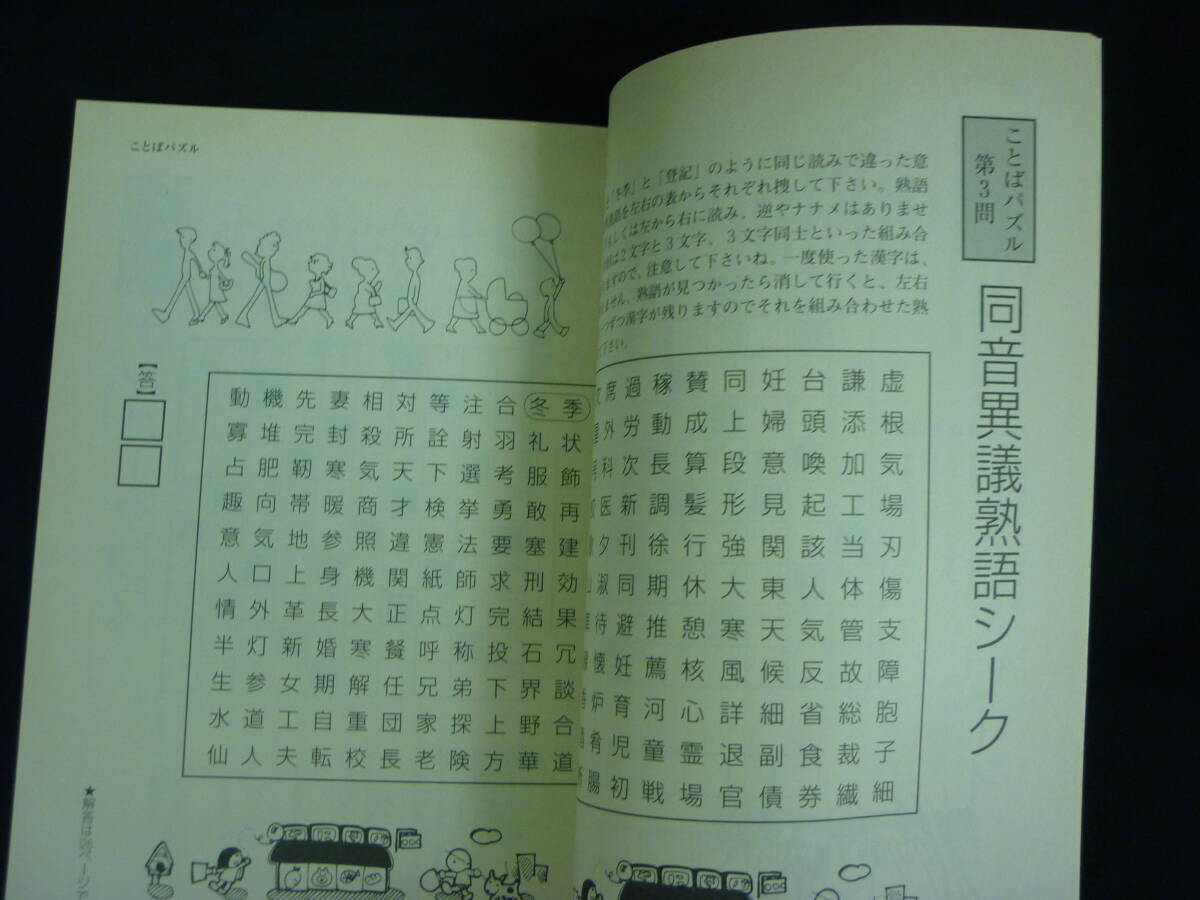 ことばパズル
第3問
同音異議熟語シーク
「冬季」と「登記」のように同じ読みで違った意
熟語を左右の表からそれぞれ捜して下さい。熟語
もしくは左から右に読み、逆やナナメはありませ
は2文字と3文字、3文字同士といった組み合
ますので、注意して下さいね。一度使った漢字は、
ません。熟語が見つかったら消して行くと、左右
つずつ漢字が残りますのでそれを組み合わせた熟
下さい。
席過稼賛同妊台謙虚
外労動成上婦頭添根
科次長算段意喚加気
医新調髪形見起工場
夕刊徐行強関該当刃
淑同期休大東人体傷
待避推憩寒天気管支
懐妊薦核風候反故障
炉育河心詳細省総胞
肴児童霊退副食裁子
腸初戦場官債券繊細
ことばパズル
動機先妻相対等注合冬季
寡堆完封殺所詮射羽礼状
占肥靭寒気天下選考服飾
趣向帯暖商才検挙勇敢再
意気地参照違憲法要塞建
人口上身機関紙師求刑効
情外革長大正点灯完結果
半灯新婚寒餐呼称投石冗
生参女期解任兄弟下界談
水道工自重団家探上野合
仙人夫転校長老険方華道
【答】
★解答は96ページで